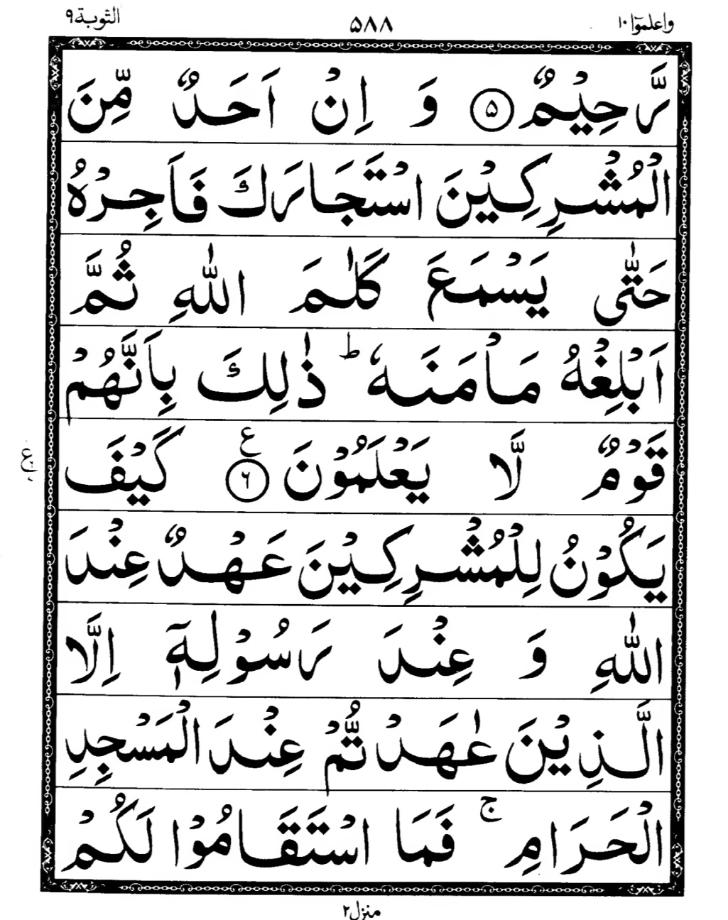 التوبة ۹ ۵۸۸ واعلموٓا ۱۰
رَّحِيْمٌ ۝۵ وَ اِنْ اَحَدٌ مِّنَ
الْمُشْرِكِيْنَ اسْتَجَارَكَ فَاَجِرْهُ
حَتّٰى يَسْمَعَ كَلٰمَ اللّٰهِ ثُمَّ
اَبْلِغْهُ مَاْمَنَهٗ ؕ ذٰلِكَ بِاَنَّهُمْ
قَوْمٌ لَّا يَعْلَمُوْنَ ۝۶ ع كَيْفَ
يَكُوْنُ لِلْمُشْرِكِيْنَ عَهْدٌ عِنْدَ
اللّٰهِ وَ عِنْدَ رَسُوْلِهٖۤ اِلَّا
الَّذِيْنَ عٰهَدْتُّمْ عِنْدَ الْمَسْجِدِ
الْحَرَامِ ۚ فَمَا اسْتَقَامُوْا لَكُمْ
منزل ۲